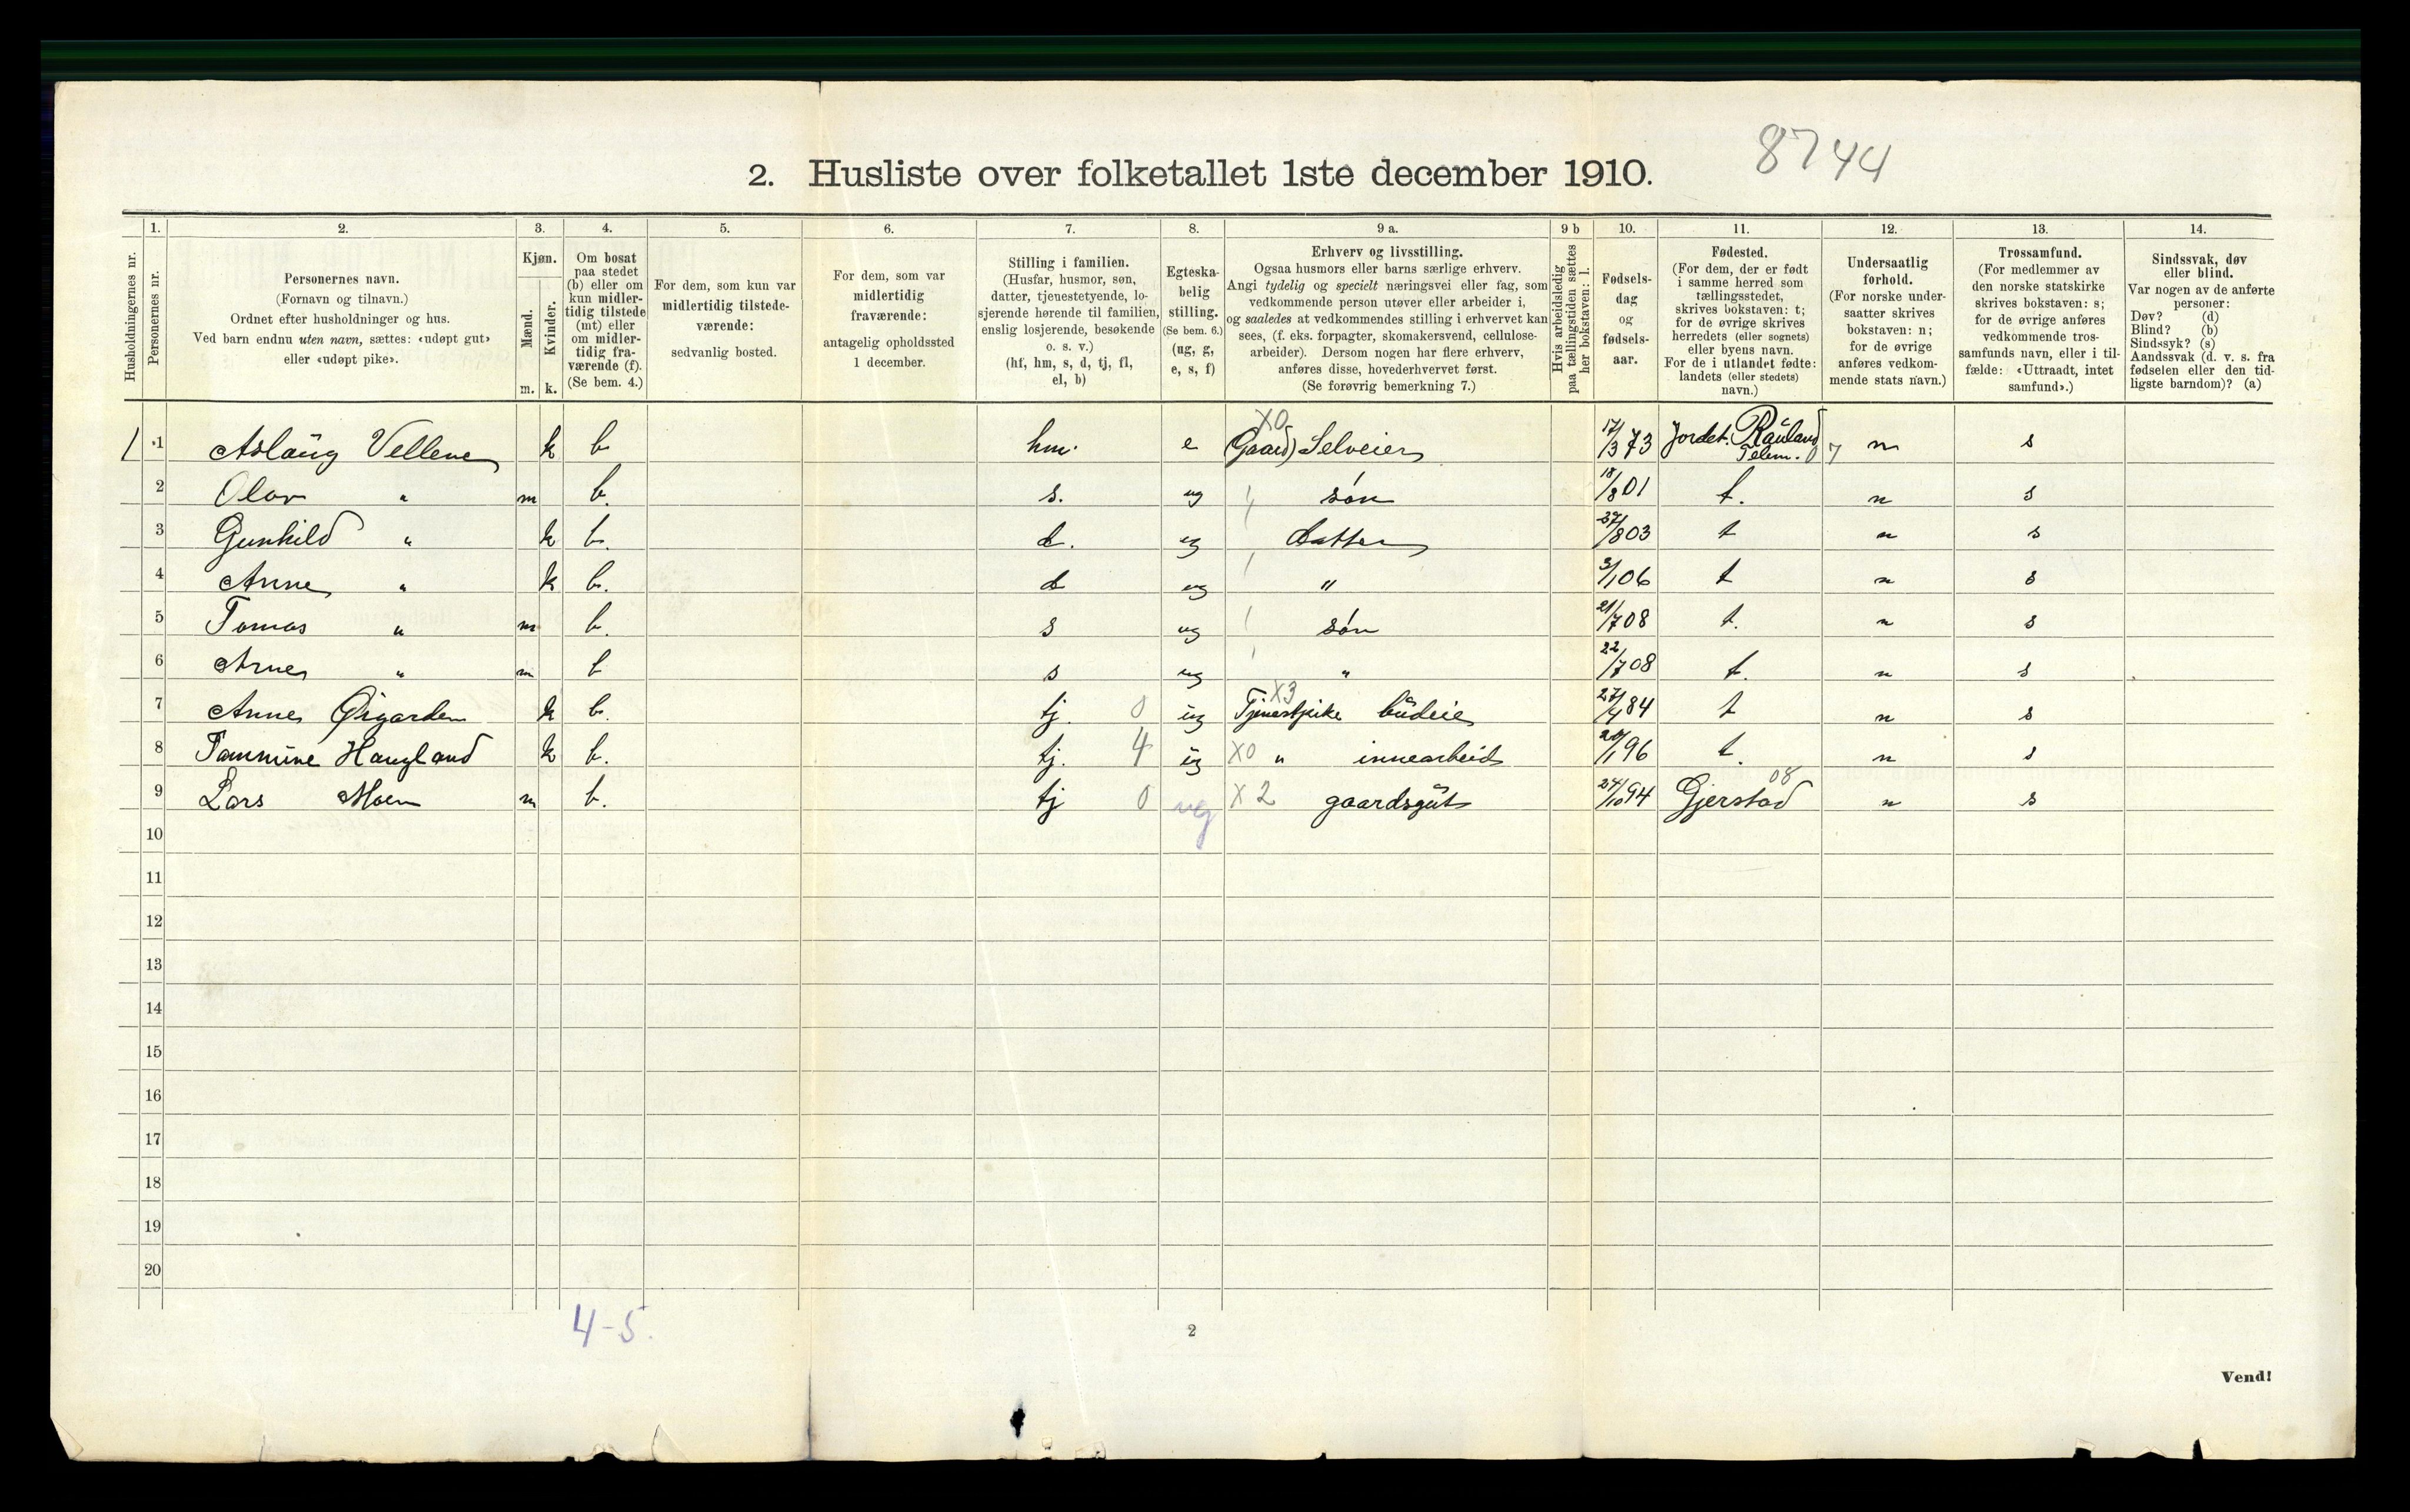 8744
2. Husliste over folketallet 1ste december 1910.
Husholdningernes nr.
1.
Personernes nr.
2.
Personernes navn.
(Fornavn og tilnavn.)
Ordnet efter husholdninger og hus.
Ved barn endnu uten navn, sættes: «udøpt gut»
eller «udøpt pike».
3.
Kjøn.
Mænd.
Kvinder.
m. k.
4.
Om bosat
paa stedet
(b) eller om
kun midler-
tidig tilstede
(mt) eller
om midler-
tidig fra-
værende (f).
(Se bem. 4.)
5.
For dem, som kun var
midlertidig tilstede-
værende:
sedvanlig bosted.
6.
For dem, som var
midlertidig
fraværende:
antagelig opholdssted
1 december.
7.
Stilling i familien.
(Husfar, husmor, søn,
datter, tjenestetyende, lo-
sjerende hørende til familien,
enslig losjerende, besøkende
o. s. v.)
(hf, hm, s, d, tj, fl,
el, b)
8.
Egteska-
belig
stilling.
(Se bem. 6.)
(ug, g,
e, s, f)
9 a.
Erhverv og livsstilling.
Ogsaa husmors eller barns særlige erhverv.
Angi tydelig og specielt næringsvei eller fag, som
vedkommende person utøver eller arbeider i,
og saaledes at vedkommendes stilling i erhvervet kan
sees, (f. eks. forpagter, skomakersvend, cellulose-
arbeider). Dersom nogen har flere erhverv,
anføres disse, hovederhvervet først.
(Se forøvrig bemerkning 7.)
9 b
Hvis arbeidsledig
paa tællingstiden sættes
her bokstaven: l.
10.
Fødsels-
dag
og
fødsels-
aar.
11.
Fødested.
(For dem, der er født
i samme herred som
tællingsstedet,
skrives bokstaven: t;
for de øvrige skrives
herredets (eller sognets)
eller byens navn.
For de i utlandet fødte:
landets (eller stedets)
navn.)
12.
Undersaatlig
forhold.
(For norske under-
saatter skrives
bokstaven: n;
for de øvrige
anføres vedkom-
mende stats navn.)
13.
Trossamfund.
(For medlemmer av
den norske statskirke
skrives bokstaven: s;
for de øvrige anføres
vedkommende tros-
samfunds navn, eller i til-
fælde: «Uttraadt, intet
samfund».)
14.
Sindssvak, døv
eller blind.
Var nogen av de anførte
personer:
Døv? (d)
Blind? (b)
Sindssyk? (s)
Aandssvak (d. v. s. fra
fødselen eller den tid-
ligste barndom)? (a)
1 1 Aslaug Vellene k b hm. e X0 (Gaard) Selveier 17/3 73 Jordet. Rauland Telem. 07 n s
2 Olav " m b. s. ug søn 18/8 01 t. n s
3 Gunhild " k b. d. ug datter 27/8 03 t n s
4 Anne " k b. d ug " 3/1 06 t n s
5 Tomas " m b. s ug søn 21/7 08 t. n s
6 Arne " m b s ug " 22/7 08 t. n s
7 Anne Øigarden k b. tj. 0 ug X3 Tjenestpike budeie 27/4 84 t n s
8 Tammine Haugland k b. tj. 4 ug X0 " innearbeid 20/1 96 t. n s
9 Lars Moen m b. tj 0 ug X2 gaardsgut 24/10 94 Gjerstad 08 n s
10
11
12
13
14
15
16
17
18
19
20
4-5.
2
Vend!